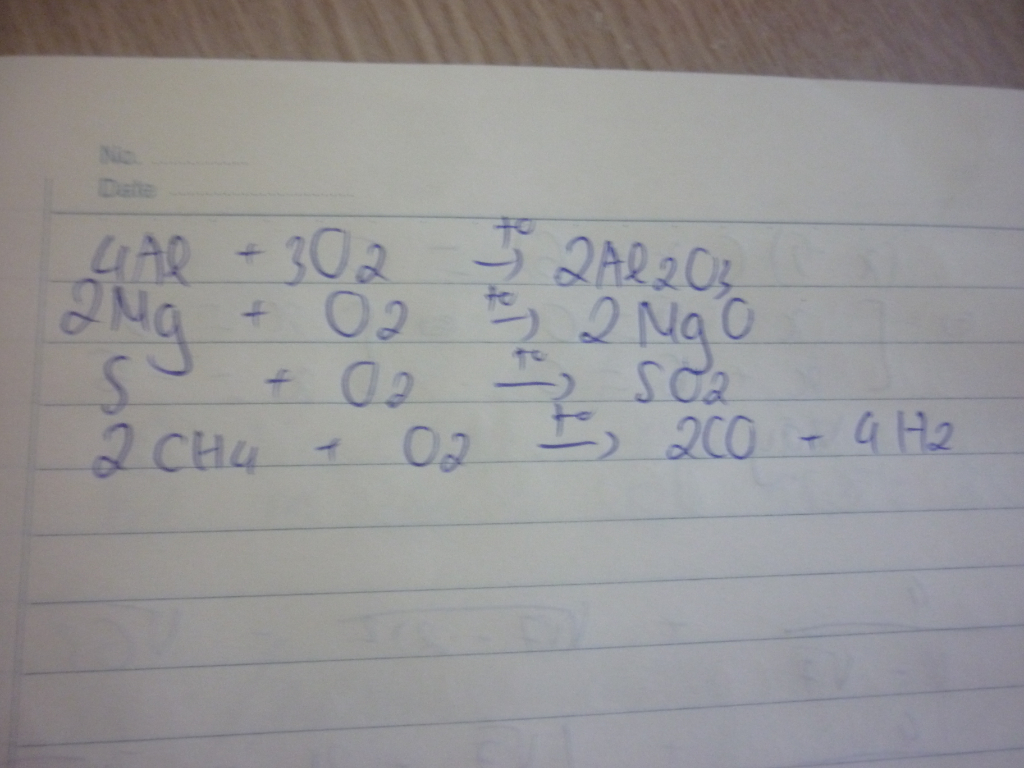 No. ...............
Date ...............
4Al + 3O2 t° → 2Al2O3
2Mg + O2 t° → 2MgO
S + O2 t° → SO2
2CH4 + O2 t° → 2CO + 4H2